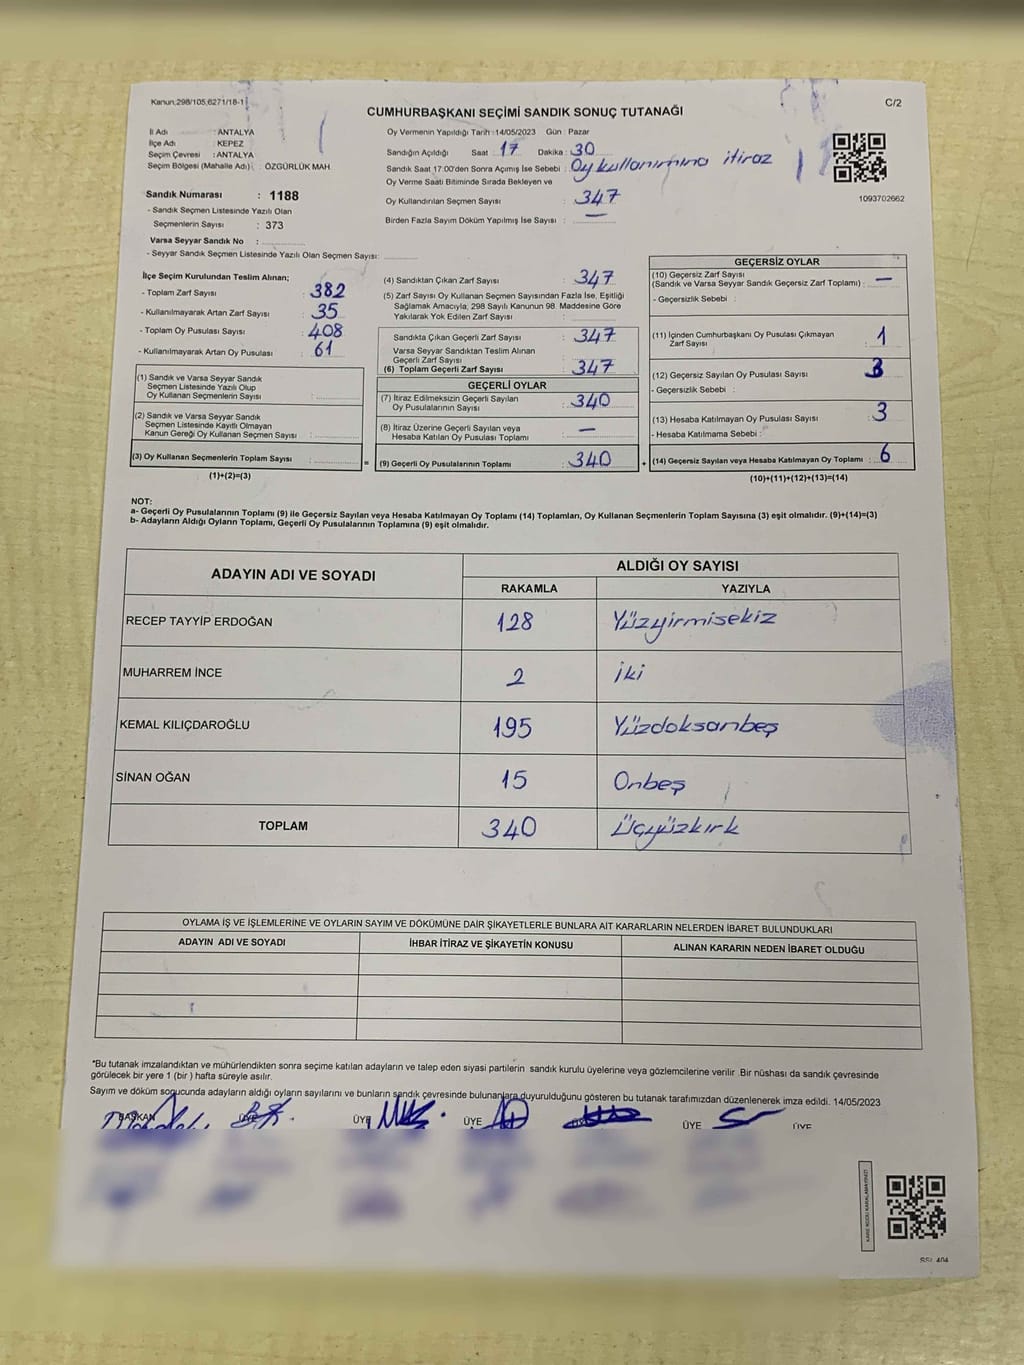 Kanun:298/105,6271/18-1
C/2
CUMHURBAŞKANI SEÇİMİ SANDIK SONUÇ TUTANAĞI
İl Adı : ANTALYA
İlçe Adı : KEPEZ
Seçim Çevresi : ANTALYA
Seçim Bölgesi (Mahalle Adı) : ÖZGÜRLÜK MAH.
Sandık Numarası : 1188
- Sandık Seçmen Listesinde Yazılı Olan
Seçmenlerin Sayısı : 373
Varsa Seyyar Sandık No :
- Seyyar Sandık Seçmen Listesinde Yazılı Olan Seçmen Sayısı:
Oy Vermenin Yapıldığı Tarih :14/05/2023 Gün : Pazar
Sandığın Açıldığı Saat : 17 Dakika : 30
Sandık Saat 17:00'den Sonra Açımış İse Sebebi : Oy kullanımına itiraz
Oy Verme Saati Bitiminde Sırada Bekleyen ve
Oy Kullandırılan Seçmen Sayısı : 347
Birden Fazla Sayım Döküm Yapılmış İse Sayısı : —
1093702662
İlçe Seçim Kurulundan Teslim Alınan;
- Toplam Zarf Sayısı : 382
- Kullanılmayarak Artan Zarf Sayısı : 35
- Toplam Oy Pusulası Sayısı : 408
- Kullanılmayarak Artan Oy Pusulası : 61
(1) Sandık ve Varsa Seyyar Sandık
Seçmen Listesinde Yazılı Olup
Oy Kullanan Seçmenlerin Sayısı :
(2) Sandık ve Varsa Seyyar Sandık
Seçmen Listesinde Kayıtlı Olmayan
Kanun Gereği Oy Kullanan Seçmen Sayısı :
(3) Oy Kullanan Seçmenlerin Toplam Sayısı :
(1)+(2)=(3)
(4) Sandıktan Çıkan Zarf Sayısı : 347
(5) Zarf Sayısı Oy Kullanan Seçmen Sayısından Fazla İse, Eşitliği
Sağlamak Amacıyla, 298 Sayılı Kanunun 98. Maddesine Göre
Yakılarak Yok Edilen Zarf Sayısı :
Sandıkta Çıkan Geçerli Zarf Sayısı : 347
Varsa Seyyar Sandıktan Teslim Alınan
Geçerli Zarf Sayısı :
(6) Toplam Geçerli Zarf Sayısı : 347
GEÇERLİ OYLAR
(7) İtiraz Edilmeksizin Geçerli Sayılan
Oy Pusulalarının Sayısı : 340
(8) İtiraz Üzerine Geçerli Sayılan veya
Hesaba Katılan Oy Pusulası Toplamı : —
= (9) Geçerli Oy Pusulalarının Toplamı : 340
GEÇERSİZ OYLAR
(10) Geçersiz Zarf Sayısı
(Sandık ve Varsa Seyyar Sandık Geçersiz Zarf Toplamı) : —
- Geçersizlik Sebebi :
(11) İçinden Cumhurbaşkanı Oy Pusulası Çıkmayan
Zarf Sayısı : 1
(12) Geçersiz Sayılan Oy Pusulası Sayısı :
- Geçersizlik Sebebi :
(13) Hesaba Katılmayan Oy Pusulası Sayısı : 3
- Hesaba Katılmama Sebebi :
+ (14) Geçersiz Sayılan veya Hesaba Katılmayan Oy Toplamı : 6
(10)+(11)+(12)+(13)=(14)
NOT:
a- Geçerli Oy Pusulalarının Toplamı (9) ile Geçersiz Sayılan veya Hesaba Katılmayan Oy Toplamı (14) Toplamları, Oy Kullanan Seçmenlerin Toplam Sayısına (3) eşit olmalıdır. (9)+(14)=(3)
b- Adayların Aldığı Oyların Toplamı, Geçerli Oy Pusulalarının Toplamına (9) eşit olmalıdır.
ADAYIN ADI VE SOYADI
ALDIĞI OY SAYISI
RAKAMLA YAZIYLA
RECEP TAYYİP ERDOĞAN 128 Yüzyirmisekiz
MUHARREM İNCE 2 İki
KEMAL KILIÇDAROĞLU 195 Yüzdoksanbeş
SİNAN OĞAN 15 Onbeş
TOPLAM 340 Üçyüzkırk
OYLAMA İŞ VE İŞLEMLERİNE VE OYLARIN SAYIM VE DÖKÜMÜNE DAİR ŞİKAYETLERLE BUNLARA AİT KARARLARIN NELERDEN İBARET BULUNDUKLARI
ADAYIN ADI VE SOYADI İHBAR İTİRAZ VE ŞİKAYETİN KONUSU ALINAN KARARIN NEDEN İBARET OLDUĞU
*Bu tutanak imzalandıktan ve mühürlendikten sonra seçime katılan adayların ve talep eden siyasi partilerin sandık kurulu üyelerine veya gözlemcilerine verilir .Bir nüshası da sandık çevresinde
görülecek bir yere 1 (bir ) hafta süreyle asılır.
Sayım ve döküm sonucunda adayların aldığı oyların sayılarını ve bunların sandık çevresinde bulunanlara duyurulduğunu gösteren bu tutanak tarafımızdan düzenlenerek imza edildi. 14/05/2023
BAŞKAN ÜYE ÜYE ÜYE ÜYE ÜYE